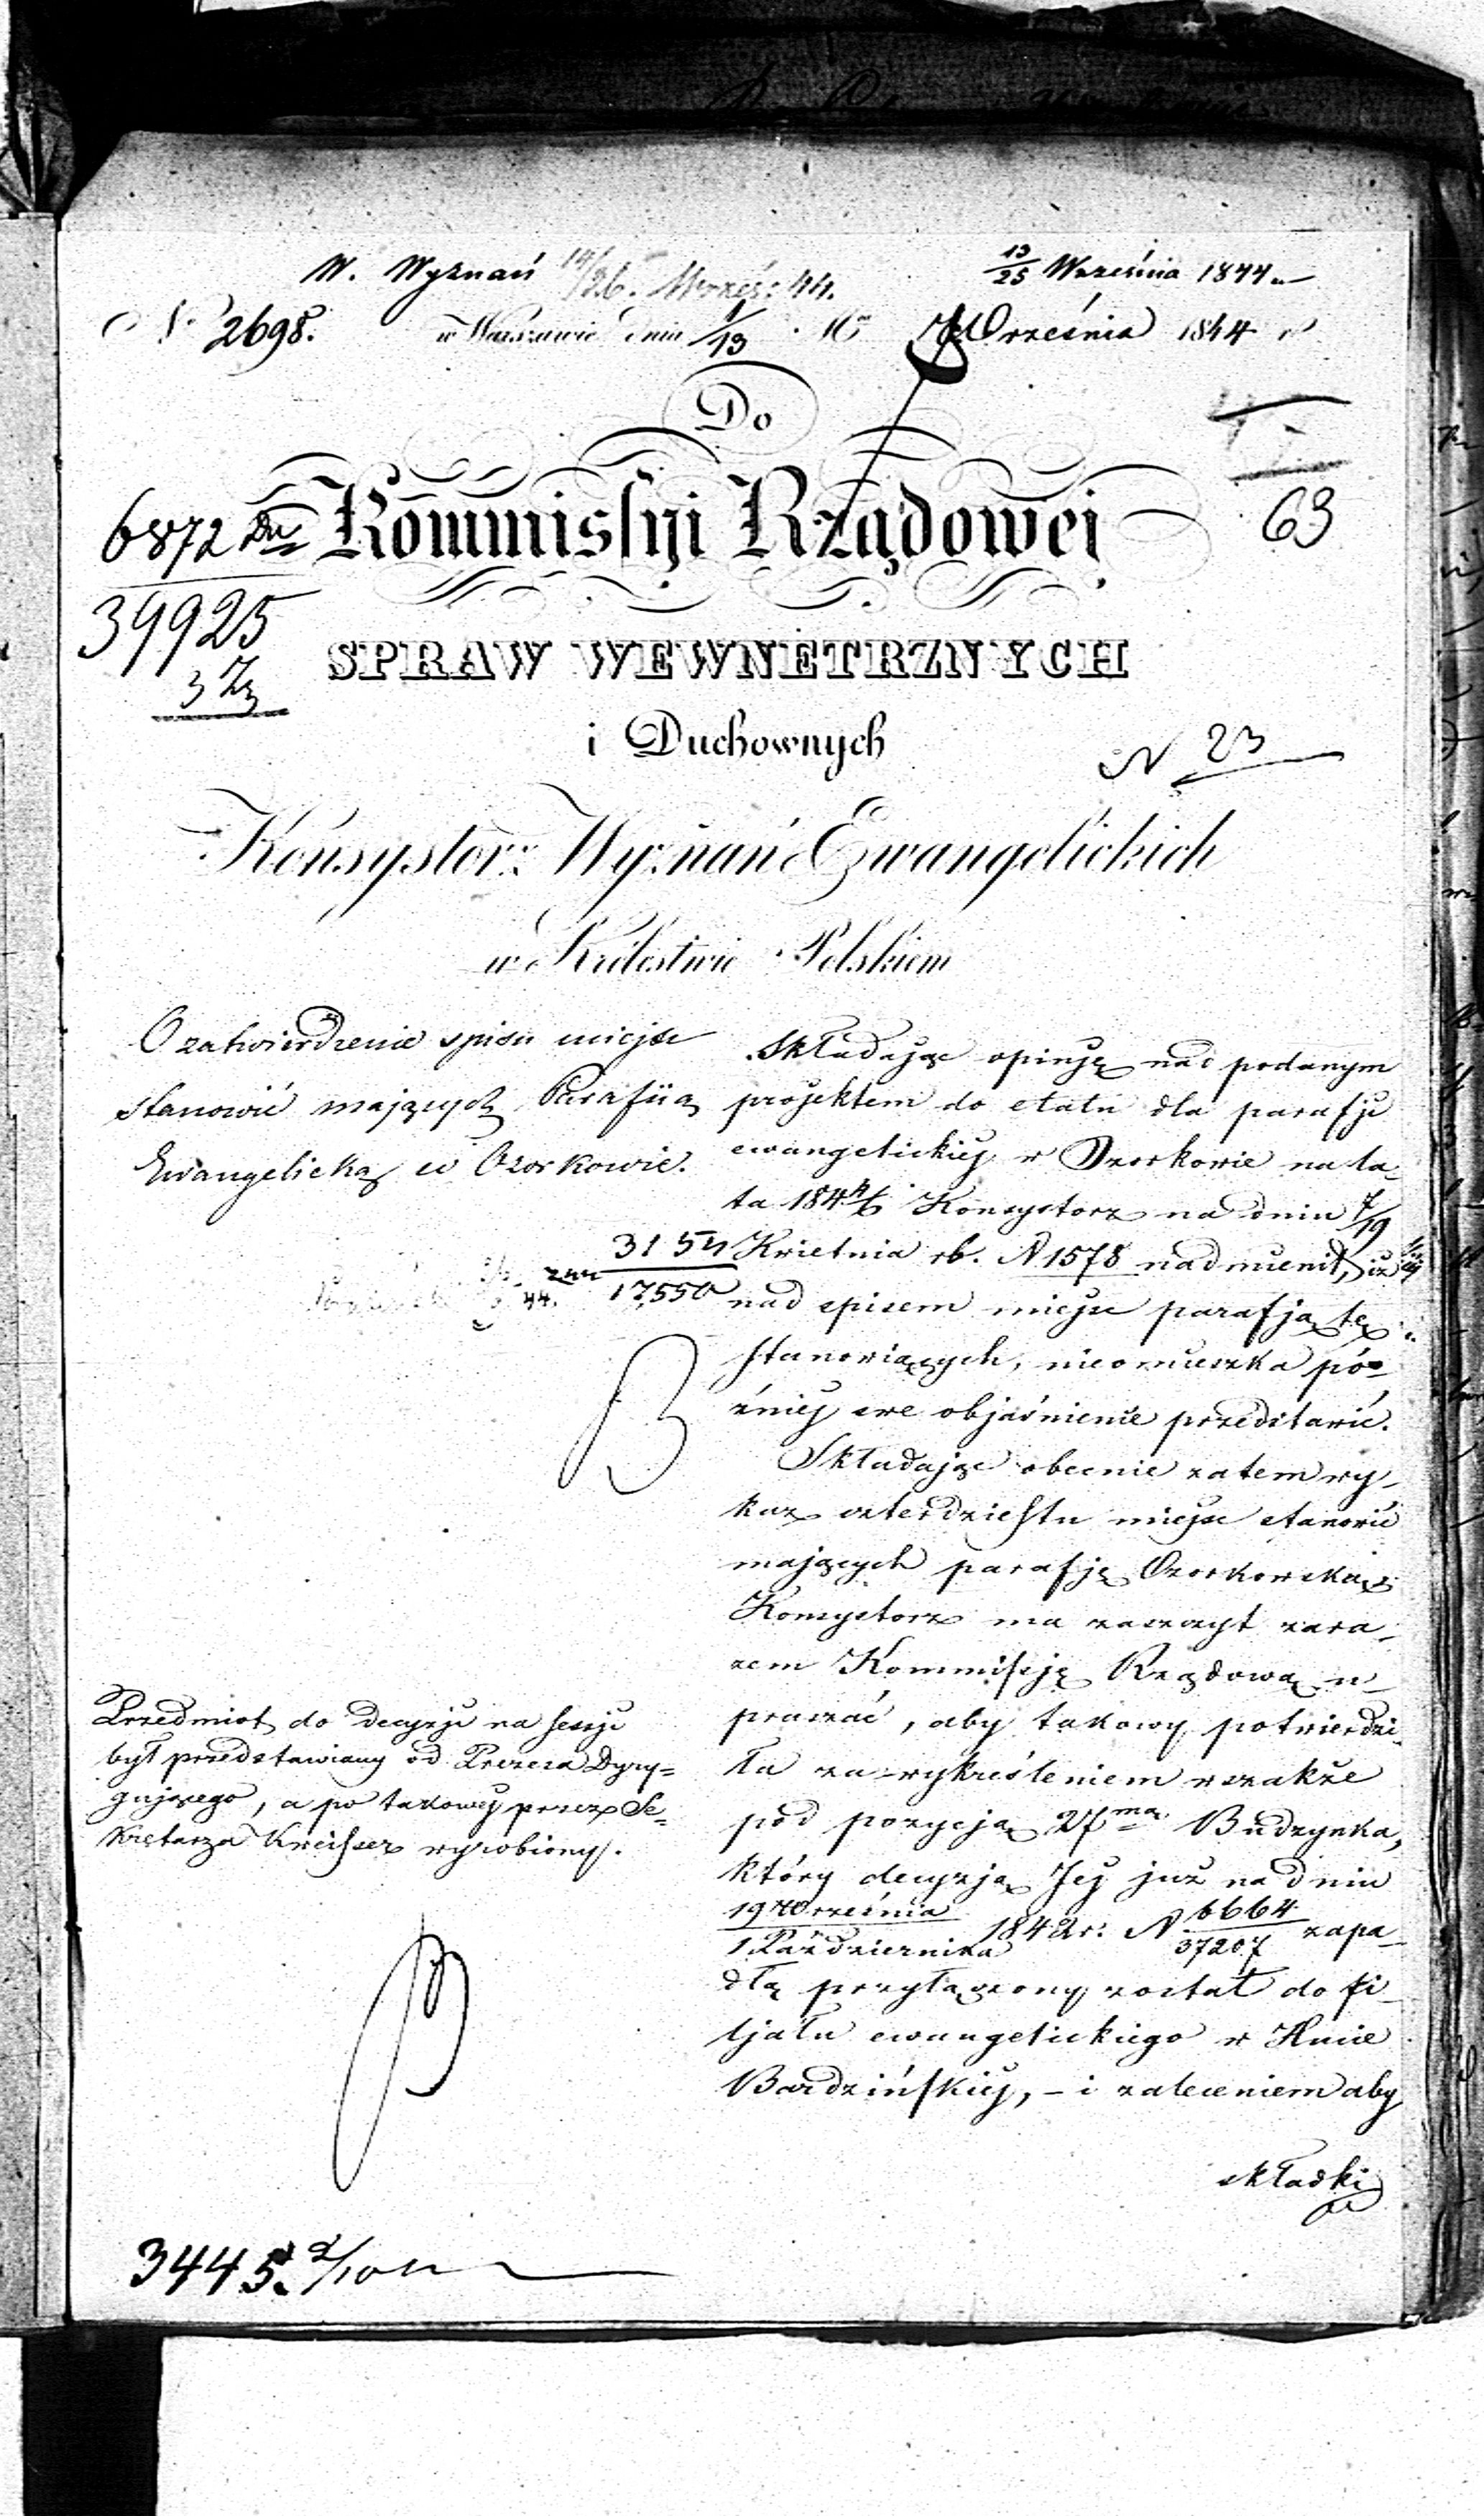 W. Wyznań 14/26 Wrześ: 44.
13/25 Września 1844
No 2698. w Warszawie dnia 1/13 Września 1844 r
Do
Kommissyi Rządowej
6872
39925
63
SPRAW WEWNĘTRZNYCH
i Duchownych
N 23
Konsystorz Wyznań Ewangelickich
w Królestwie Polskiem
O zatwierdzenie spisu miejsc
stanowić mających Parafiią
Ewangelicką w Ozorkowie.
Składając opinję nad podanym
projektem do etatu dla parafji
ewangelickiej w Ozorkowie na la-
ta 184 4/6 Konsystorz na dniu 7/19
Kwietnia rb. N 1578 nadmienił, iż
3154
17,550
44.
nad spisem miejsc parafją tę
stanowiących, nieomieszka pó-
źniej swe objaśnienie przedstawić.
Składając obecnie zatem wy-
kaz czterdziestu miejsc stanowić
mających parafję Ozorkowską
Konsystorz ma zaszczyt zara-
zem Kommissję Rządową u-
praszać, aby takowy potwierdzi-
ła za wykreśleniem wszakże
pod pozycją 27mą Budzynka,
który decyzją Jej już na dniu
19 Września / 1 Października 1842 r: N 6664/37207 zapa-
dłą przyłączony został do fi-
ljału ewangelickiego w Hucie
Bardzińskiej, – i zaleceniem aby
składki
Przedmiot do decyzji na sessji
był przedstawiany od Prezesa Dyry=
gującego, a po takowej przez Se=
kretarza Kreisser wyrobiony.
3445. 2/10